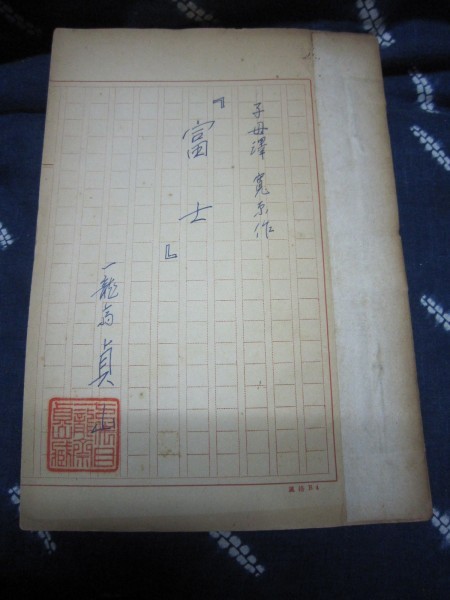 子母澤 寛原作
『富士』
一龍斎貞山